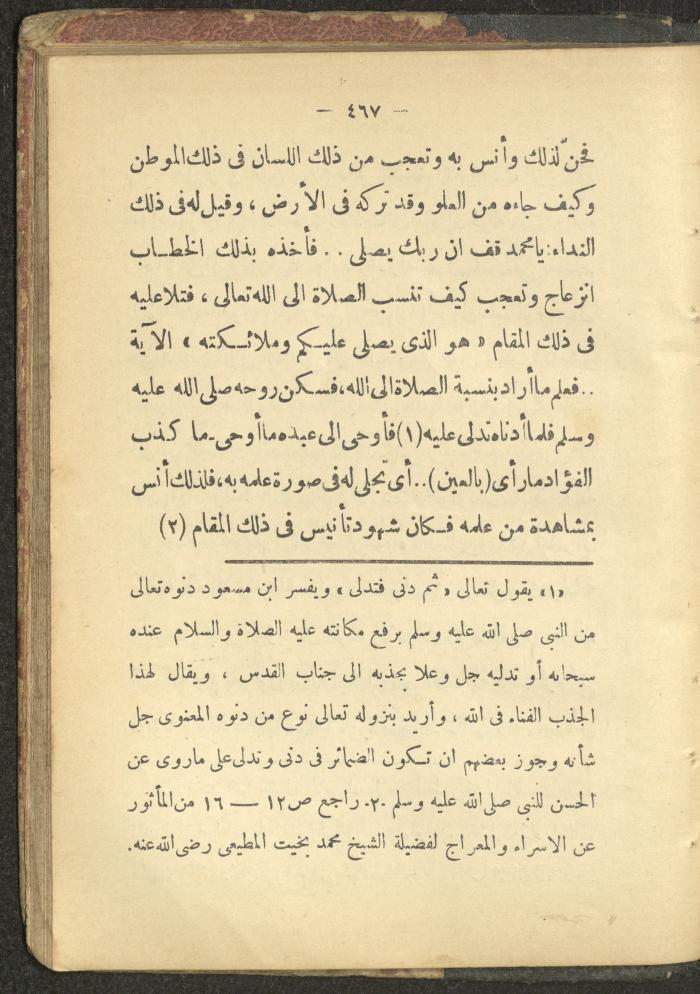 — ٤٦٧ —
فحنّ لذلك وأنس به وتعجب من ذلك اللسان فى ذلك الموطن
وكيف جاءه من العلو وقد تركه فى الأرض ، وقيل له فى ذلك
النداء : يا محمد قف ان ربك يصلى . . فأخذه بذلك الخطاب
انزعاج وتعجب كيف تنسب الصلاة الى الله تعالى ، فتلا عليه
فى ذلك المقام « هو الذى يصلى عليكم وملائكته » الآية
. . فعلم ما أراد بنسبة الصلاة الى الله ، فسكن روحه صلى الله عليه
وسلم فلما أدناه تدلى عليه (١) فأوحى الى عبده ما أوحى - ما كذب
الفؤاد ما رأى (بالعين) . . أى تجلى له فى صورة علمه به ، فلذلك أنس
بمشاهدة من علمه فكان شهود تأنيس فى ذلك المقام (٢)
«١» يقول تعالى « ثم دنى فتدلى » ويفسر ابن مسعود دنوه تعالى
من النبي صلى الله عليه وسلم برفع مكانته عليه الصلاة والسلام عنده
سبحانه أو تدليه جل وعلا بجذبه الى جناب القدس ، ويقال لهذا
الجذب الفناء فى الله ، وأريد بنزوله تعالى نوع من دنوه المعنوى جل
شأنه وجوز بعضهم ان تكون الضمائر فى دنى وتدلى على ماروى عن
الحسن للنبي صلى الله عليه وسلم .٢. راجع ص ١٢ — ١٦ من المأثور
عن الاسراء والمعراج لفضيلة الشيخ محمد بخيت المطيعى رضى الله عنه.